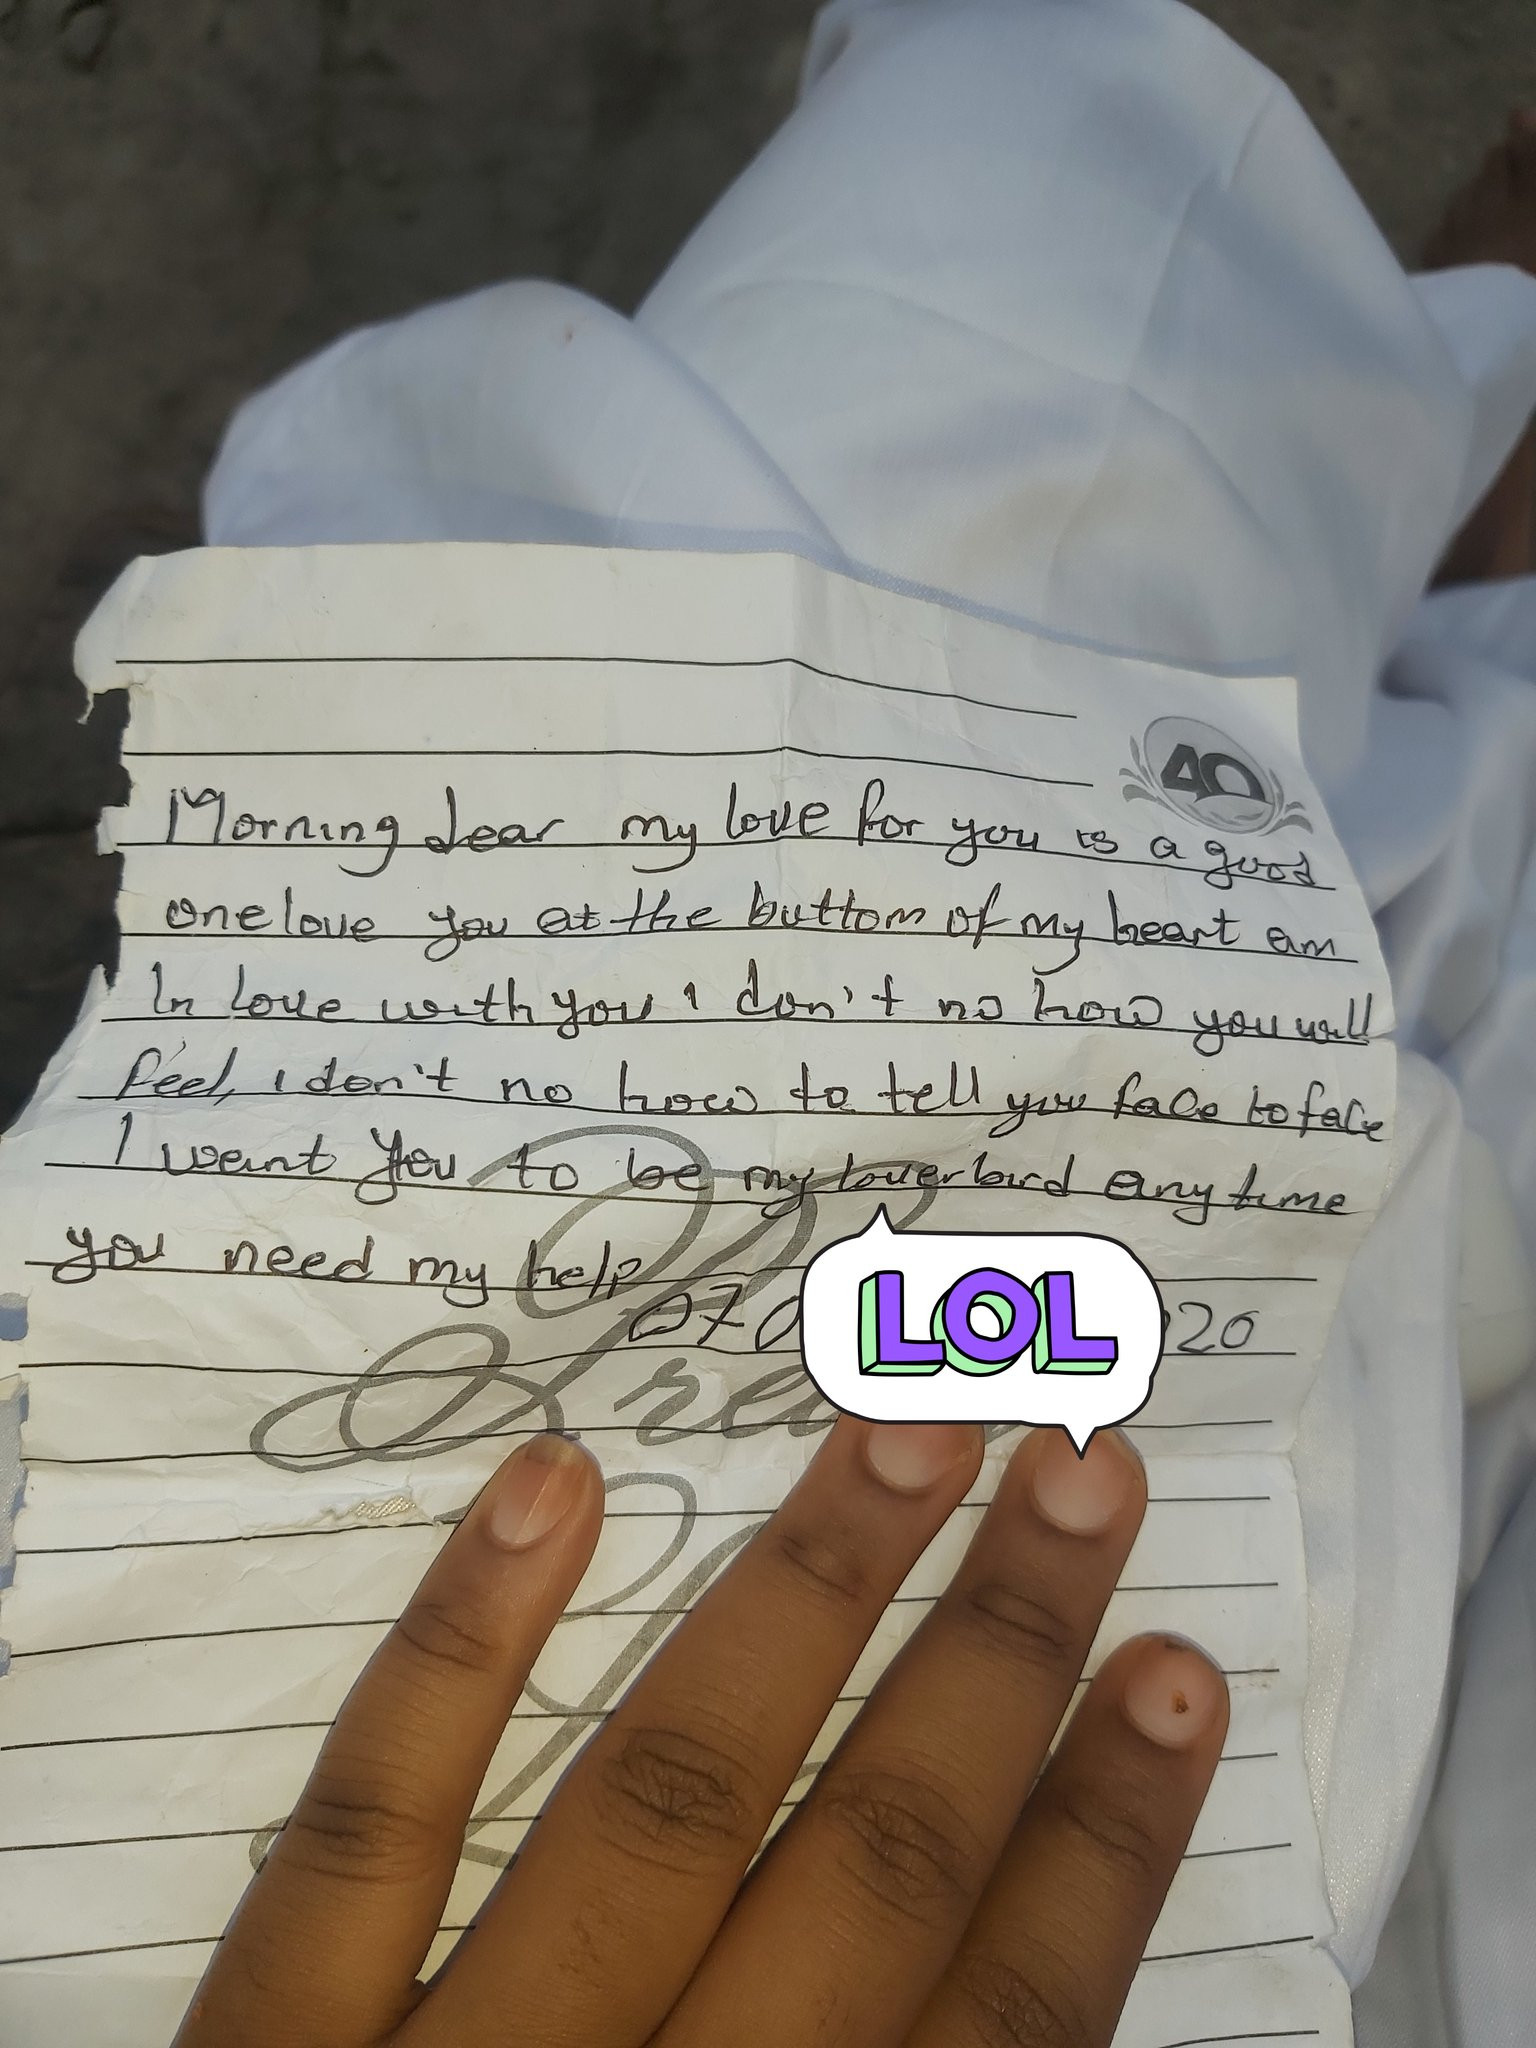 40
Morning dear my love for you is a good
one love you at the buttom of my heart am
In love with you I don't no how you will
feel, I don't no how to tell you face to face
I want you to be my loverbird anytime
you need my help
070 20
LOL